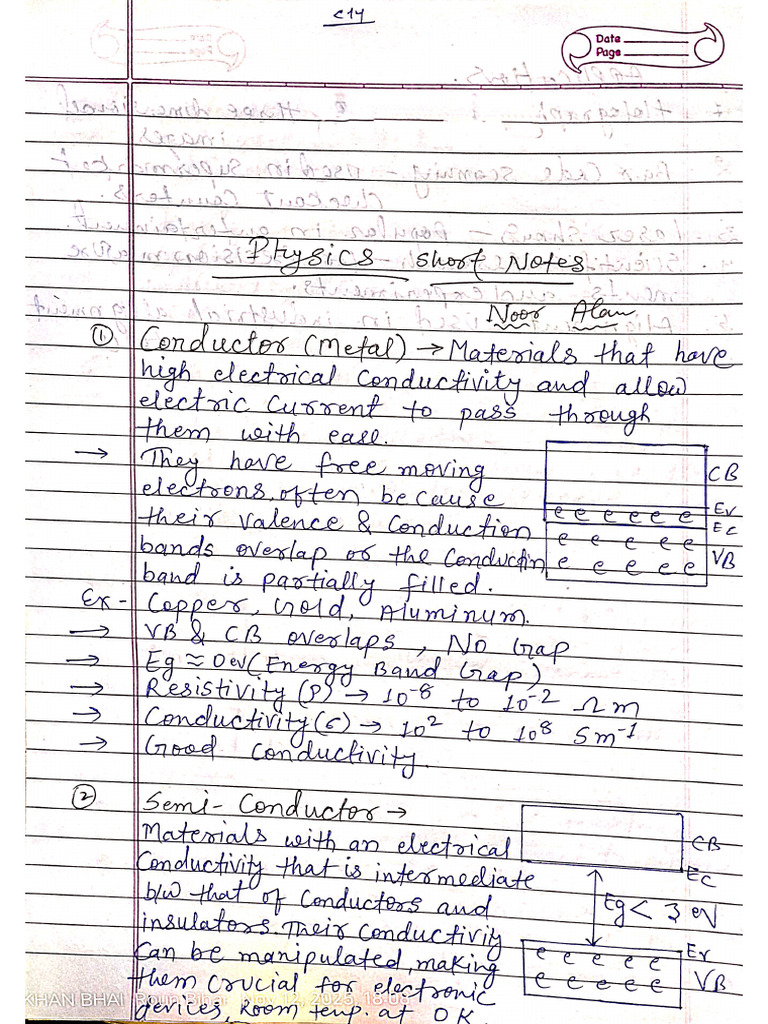 C14
Date
Page
Physics - Short Notes
Noor Alam
① Conductor (Metal) → Materials that have
high electrical conductivity and allow
electric current to pass through
them with ease.
→ They have free moving
electrons, often because
their valence & conduction
bands overlap or the conductin
band is partially filled.
CB
e e e e e e
Ev
Ec
e e e e
VB
e e e e e
Ex - Copper, Gold, Aluminum.
→ VB & CB overlaps, No Gap
→ Eg ≈ 0 ev (Energy Band Gap)
→ Resistivity (P) → 10⁻⁸ to 10⁻² Ω m
→ Conductivity (σ) → 10² to 10⁸ Sm⁻¹
→ Good conductivity.
② Semi-Conductor →
Materials with an electrical
Conductivity that is intermediate
b/w that of Conductors and
insulators. Their Conductivity
Can be manipulated, making
them crucial for electronic
devices, Room temp. at 0 K.
CB
Ec
Eg < 3 eV
e e e e e
Ev
e e e e e
VB
KHAN BHAI Roun Bihar Nov 12, 2025, 18:08